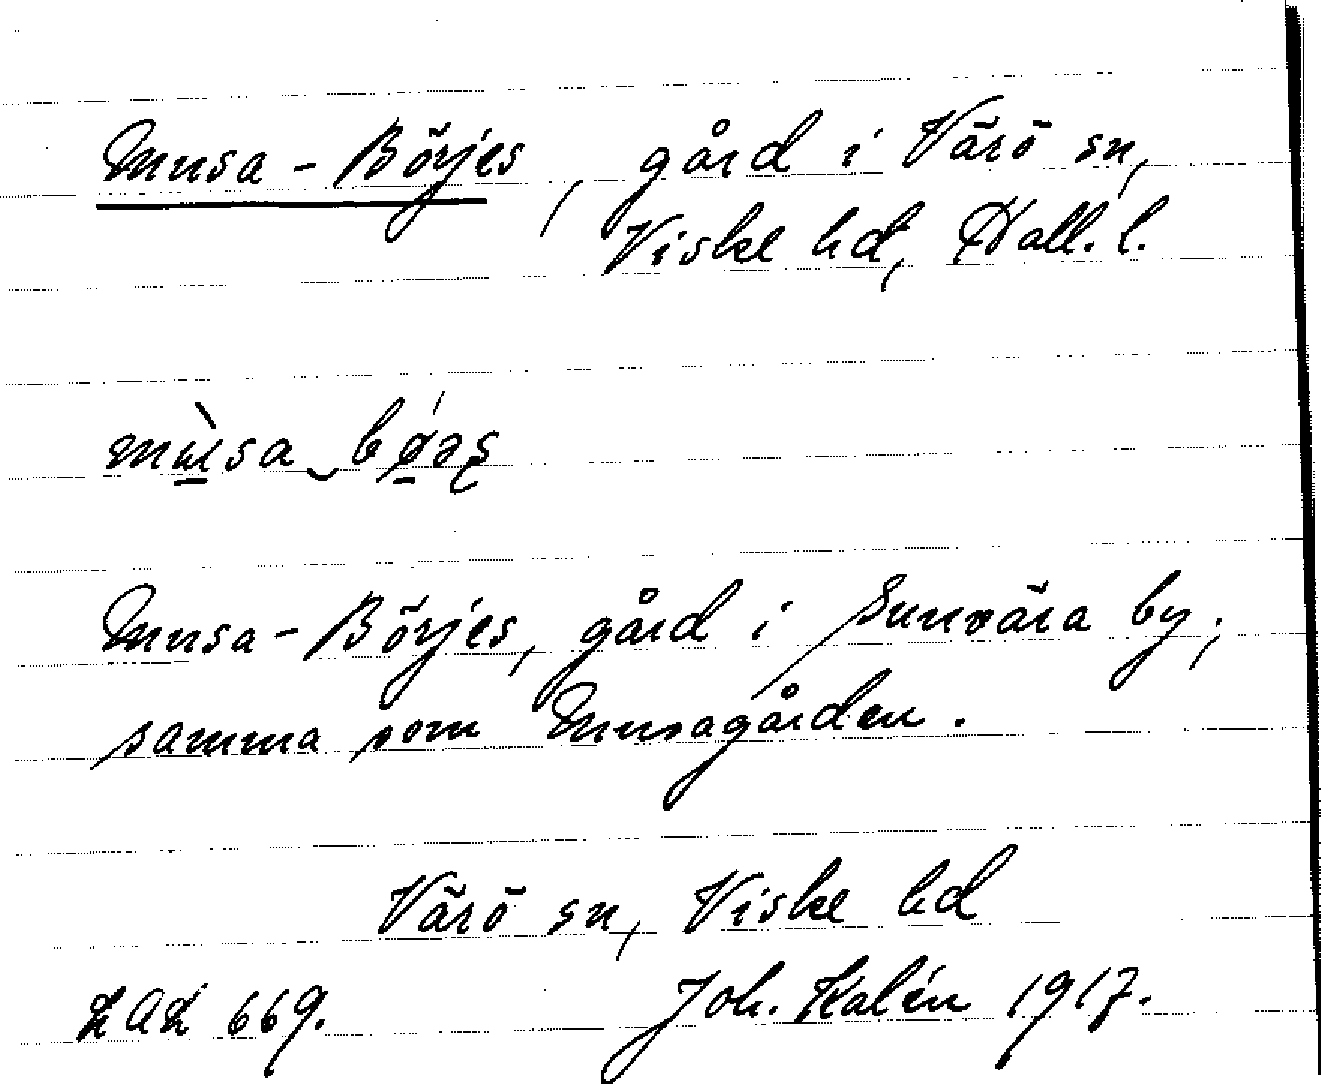 Musa-Börjes, gård i Värö sn,
Viske hd, Hall. l.
Musa-Börjes, gård i Sunvära by;
samma som Musagården.
Värö sn, Viske hd
LAL 669. Joh. Kalén 1917.